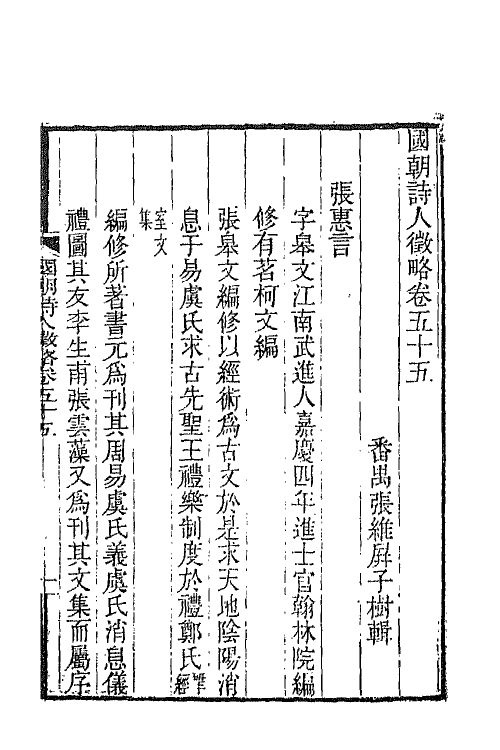 國朝詩人徵略卷五十五
番禺張維屛子樹輯
張惠言
字皋文江南武進人嘉慶四年進士官翰林院編
修有茗柯文編
張皋文編修以經術爲古文於是求天地陰陽消
息于易虞氏求古先聖王禮樂制度於禮鄭氏揅經
室文
集
編修所著書元爲刊其周易虞氏義虞氏消息儀
禮圖其友李生甫張雲藻又爲刊其文集而屬序
國朝詩人徵略卷五十五
一